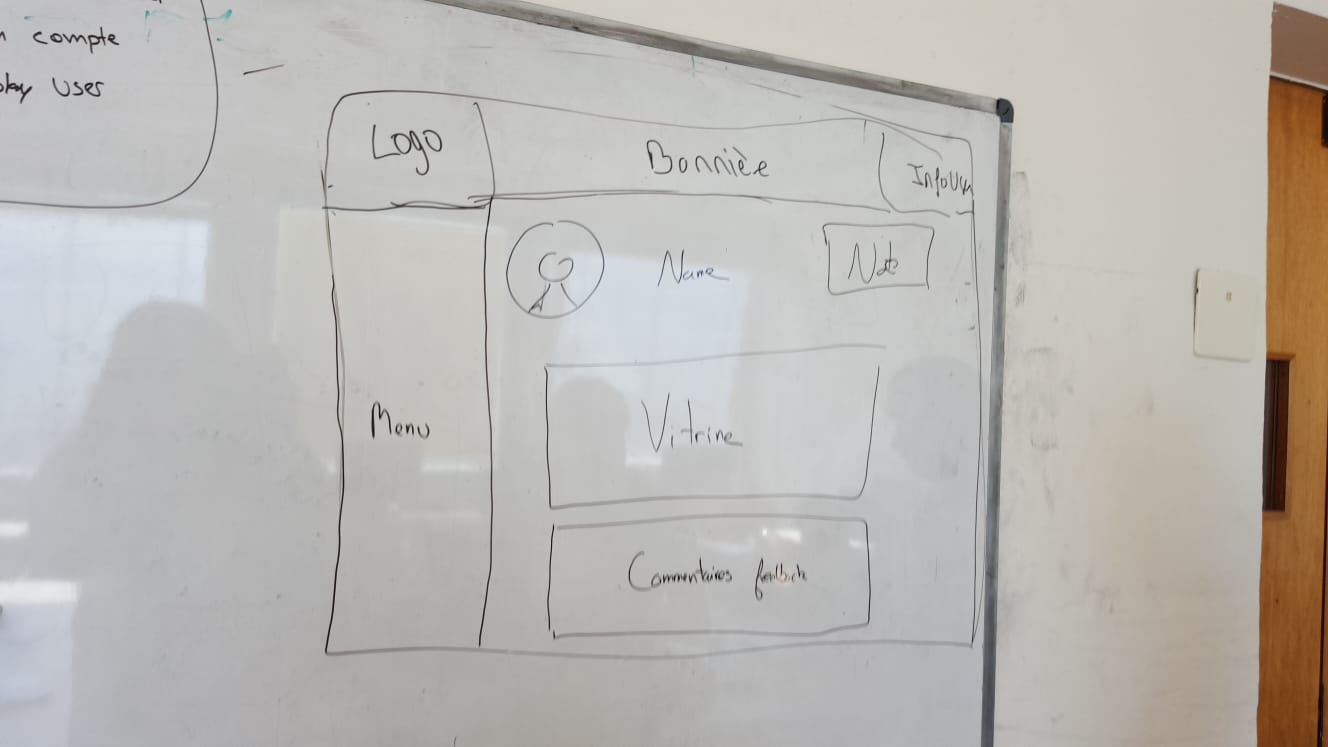 compte
users
Logo
Bannière
Name
Note
Menu
Vitrine
Commentaires feedback